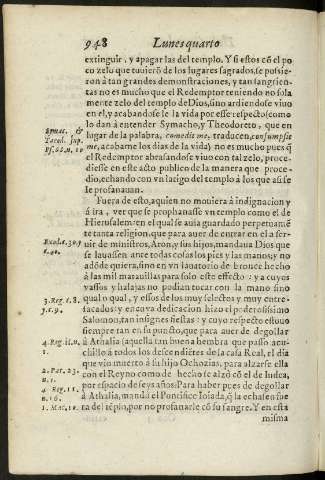 948 Lunes quarto
extinguir, y apagar las del templo. Y si estos cõ el po
co zelo que tuuierõ de los lugares sagrados, se pusie-
ron à tan grandes demonstraciones, y tan sangrien-
tas no es mucho que el Redemptor teniendo no sola
mente zelo del templo de Dios, sino ardiendose viuo
en el, y acabandose le la vida por esse respecto (como
lo dan à entender Symacho, y Theodoreto, que en
lugar de la palabra, comedit me, traducen, consumpsit
me, acabame los dias de la vida) no es mucho pues q̃
el Redemptor abrasandose viuo con tal zelo, proce-
diesse en este acto publico de la manera que proce-
dio, echando con vn laçigo del templo à los que assi se
le profanauan.
Symac. &
Teod. sup.
Ps. 68. n. 10
Fuera de esto, a quien no mouiera à indignacion y
à ira, ver que se prophanasse vn templo como el de
Hierusalem: en el qual se auia guardado perpetuamẽ
te tanta religion, que para auer de entrar en el a ser-
uir de ministros, Aron, y sus hijos, mandaua Dios que
se lauassen ante todas cosas los pies y las manos; y no
adõde quiera, sino en vn lauatorio de bronce hecho
à las mil marauillas para solo este effecto: y a cuyos
vassos y halajas no podian tocar con la mano sino
qual o qual, y essos de los muy selectos y muy entre-
sacados: y en cuya dedicacion hizo el poderosissimo
Salomon, tan insignes fiestas: y cuyo respecto estuuo
siempre tan en su punto, que para auer de degollar
à Athalia (aquella tan buena hembra que passo a cu-
chillo à todos los descendiẽtes de la casa Real, el dia
que vio muerto à su hijo Ochozias, para alzarse ella
con el Reyno como de hecho se alzò cõ el de Iudea,
por espacio de seys años: Para hauer pues de degollar
à Athalia, mandà el Pontifice Ioiada, q̃ la echassen fue
ra del tẽplo, por no profanarle cõ su sangre. Y en esta
Exod. 30.
n. 20.
3. Reg. c. 8.
4. Reg. 11. n.
1.
2. Par. 23.
n. 1.
4. Reg. 11.
n. 16
1. Mac. 10.
misma